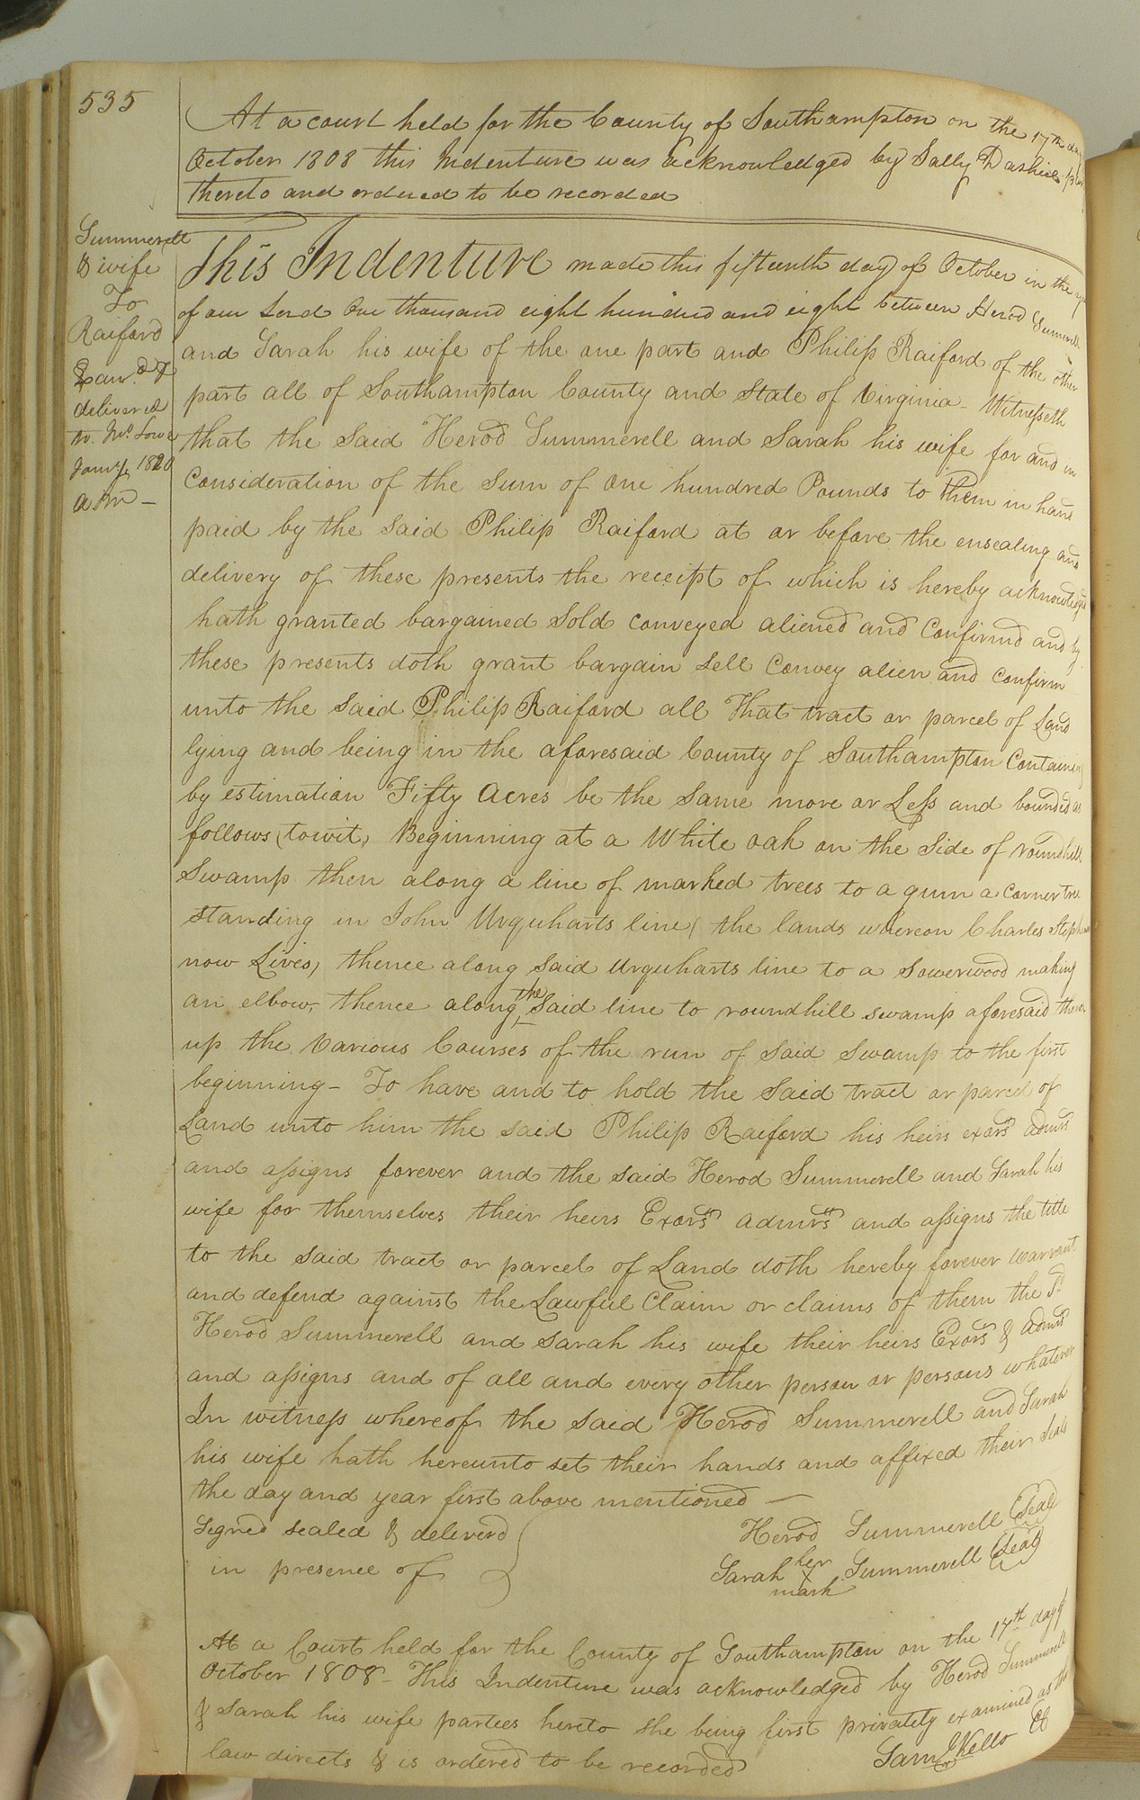 535
At a court held for the County of Southampton on the 17th day
October 1808 this Indenture was acknowledged by Sally Dashiel
thereto and ordered to be recorded
Summerell
& wife
To
Raiford
Exam.d &
delivered
to
Jany 1820
This Indenture made this fifteenth day of October in the year
of our Lord One thousand eight hundred and eight between Herod Summerell
and Sarah his wife of the one part and Philip Raiford of the other
part all of Southampton County and State of Virginia - Witnesseth
that the said Herod Summerell and Sarah his wife for and in
Consideration of the sum of one hundred Pounds to them in hand
paid by the said Philip Raiford at or before the ensealing and
delivery of these presents the receipt of which is hereby acknowledged
hath granted bargained Sold conveyed aliened and Confirmd and by
these presents doth grant bargain sell Convey alien and Confirm
unto the said Philip Raiford all That tract or parcel of Land
lying and being in the aforesaid County of Southampton Containing
by estimation Fifty Acres be the same more or Less and bounded as
follows (towit) Beginning at a White oak on the side of roundhill
Swamp then along a line of marked trees to a gum a corner tree
standing in John Urquharts line (the lands whereon Charles
now Lives) thence along said Urquharts line to a Sowerwood making
an elbow, thence along the said line to roundhill swamp aforesaid thence
up the Various Courses of the run of said swamp to the first
beginning - To have and to hold the said tract or parcel of
Land unto him the said Philip Raiford his heirs exors admrs
and assigns forever and the said Herod Summerell and Sarah his
wife for themselves their heirs Exors admrs and assigns the title
to the said tract or parcel of Land doth hereby forever warrant
and defend against the Lawful Claim or claims of them the Sd
Herod Summerell and Sarah his wife their heirs Exors & admrs
and assigns and of all and every other person or persons whatever
In witness whereof the said Herod Summerell and Sarah
his wife hath hereunto set their hands and affixed their seals
the day and year first above mentioned —
Signed sealed & deliverd
in presence of
Herod Summerell (Seal)
Sarah her Summerell (Seal)
X
mark
At a Court held for the County of Southampton on the 17th day of
October 1808 - This Indenture was acknowledged by Herod Summerell
& Sarah his wife partees hereto she being first privately examined as the
law directs & is ordered to be recorded
Saml Kello CC